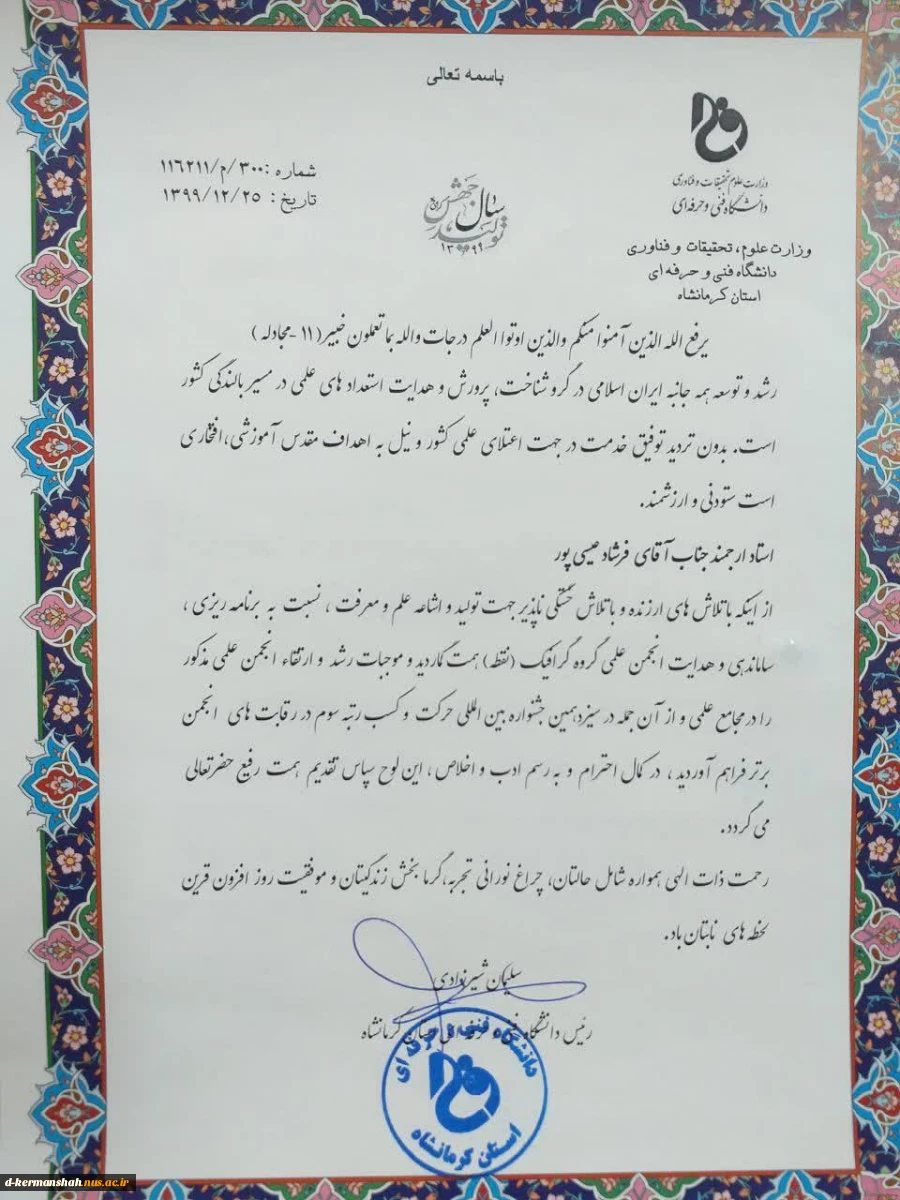 باسمه تعالی
وزارت علوم تحقیقات و فناوری
دانشگاه فنی و حرفه‌ای
شماره : ۳۰۰/م/۱۱۶۲۱۱
تاریخ : ۱۳۹۹/۱۲/۲۵
سال جهش تولید
۱۳۹۹
وزارت علوم، تحقیقات و فناوری
دانشگاه فنی و حرفه ای
استان کرمانشاه
یرفع الله الذین آمنوا منکم والذین اوتوا العلم درجات والله بما تعملون خبیر( ۱۱ -مجادله )
رشد و توسعه همه جانبه ایران اسلامی در گرو شناخت، پرورش و هدایت استعداد های علمی در مسیر بالندگی کشور
است. بدون تردید توفیق خدمت در جهت اعتلای علمی کشور و نیل به اهداف مقدس آموزشی،افتخاری
است ستودنی و ارزشمند.
استاد ارجمند جناب آقای فرشاد عیسی پور
از اینکه با تلاش های ارزنده و با تلاش خستگی ناپذیر جهت تولید و اشاعه علم و معرفت ، نسبت به برنامه ریزی ،
ساماندهی و هدایت انجمن علمی گروه گرافیک (نقطه) همت گماردید و موجبات رشد و ارتقاء انجمن علمی مذکور
را در مجامع علمی و از آن جمله در سیزدهمین جشنواره بین المللی حرکت و کسب رتبه سوم در رقابت های انجمن
برتر فراهم آوردید ، در کمال احترام و به رسم ادب و اخلاص ، این لوح سپاس تقدیم همت رفیع حضرتعالی
می گردد.
رحمت ذات الهی همواره شامل حالتان، چراغ نورانی تجربه،گرما بخش زندگیتان و موفقیت روز افزون قرین
لحظه های نابتان باد.
سلیمان شیرنوادی
رئیس دانشگاه فنی و حرفه ای استان کرمانشاه
دانشگاه فنی و حرفه ای
استان کرمانشاه
d-kermanshah.nus.ac.ir